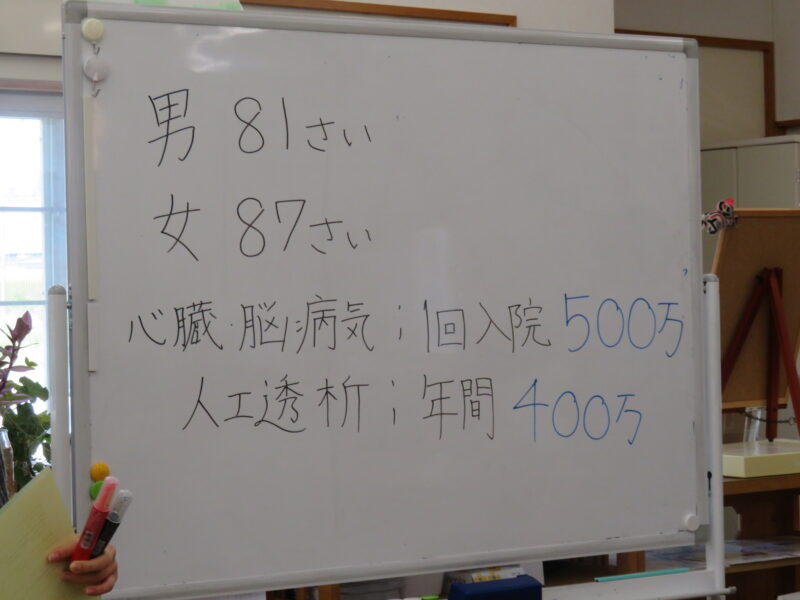 男 81さい
女 87さい
心臓・脳病気；1回入院 500万
人工透析；年間 400万